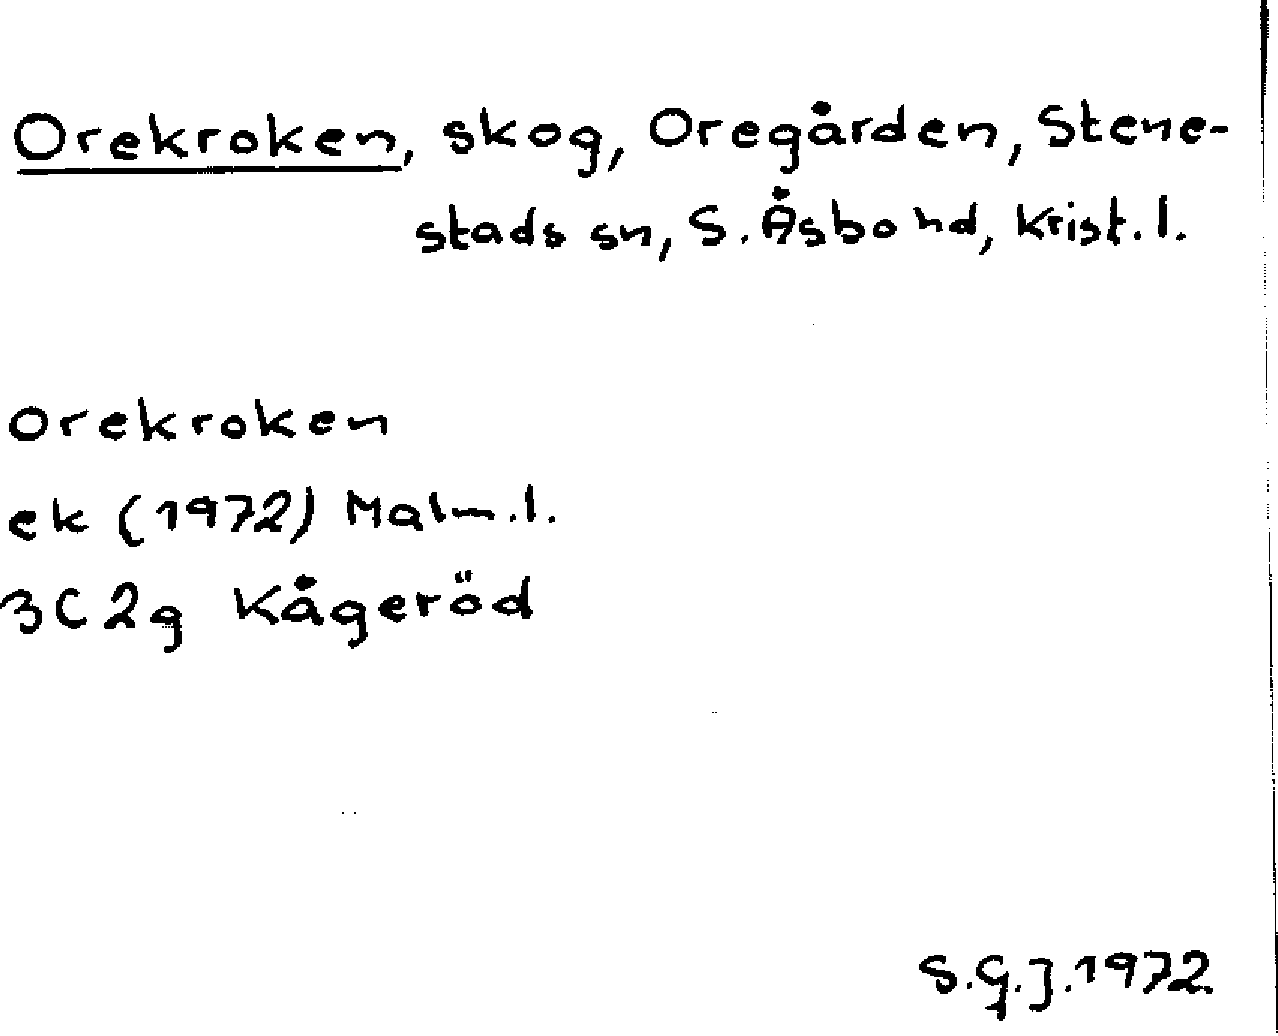 Orekroken, skog, Oregården, Stene-
stads sn, S. Åsbo hd, Krist. l.
Orekroken
ek (1972) Malm. l.
3C2g Kågeröd
S.G.J. 1972